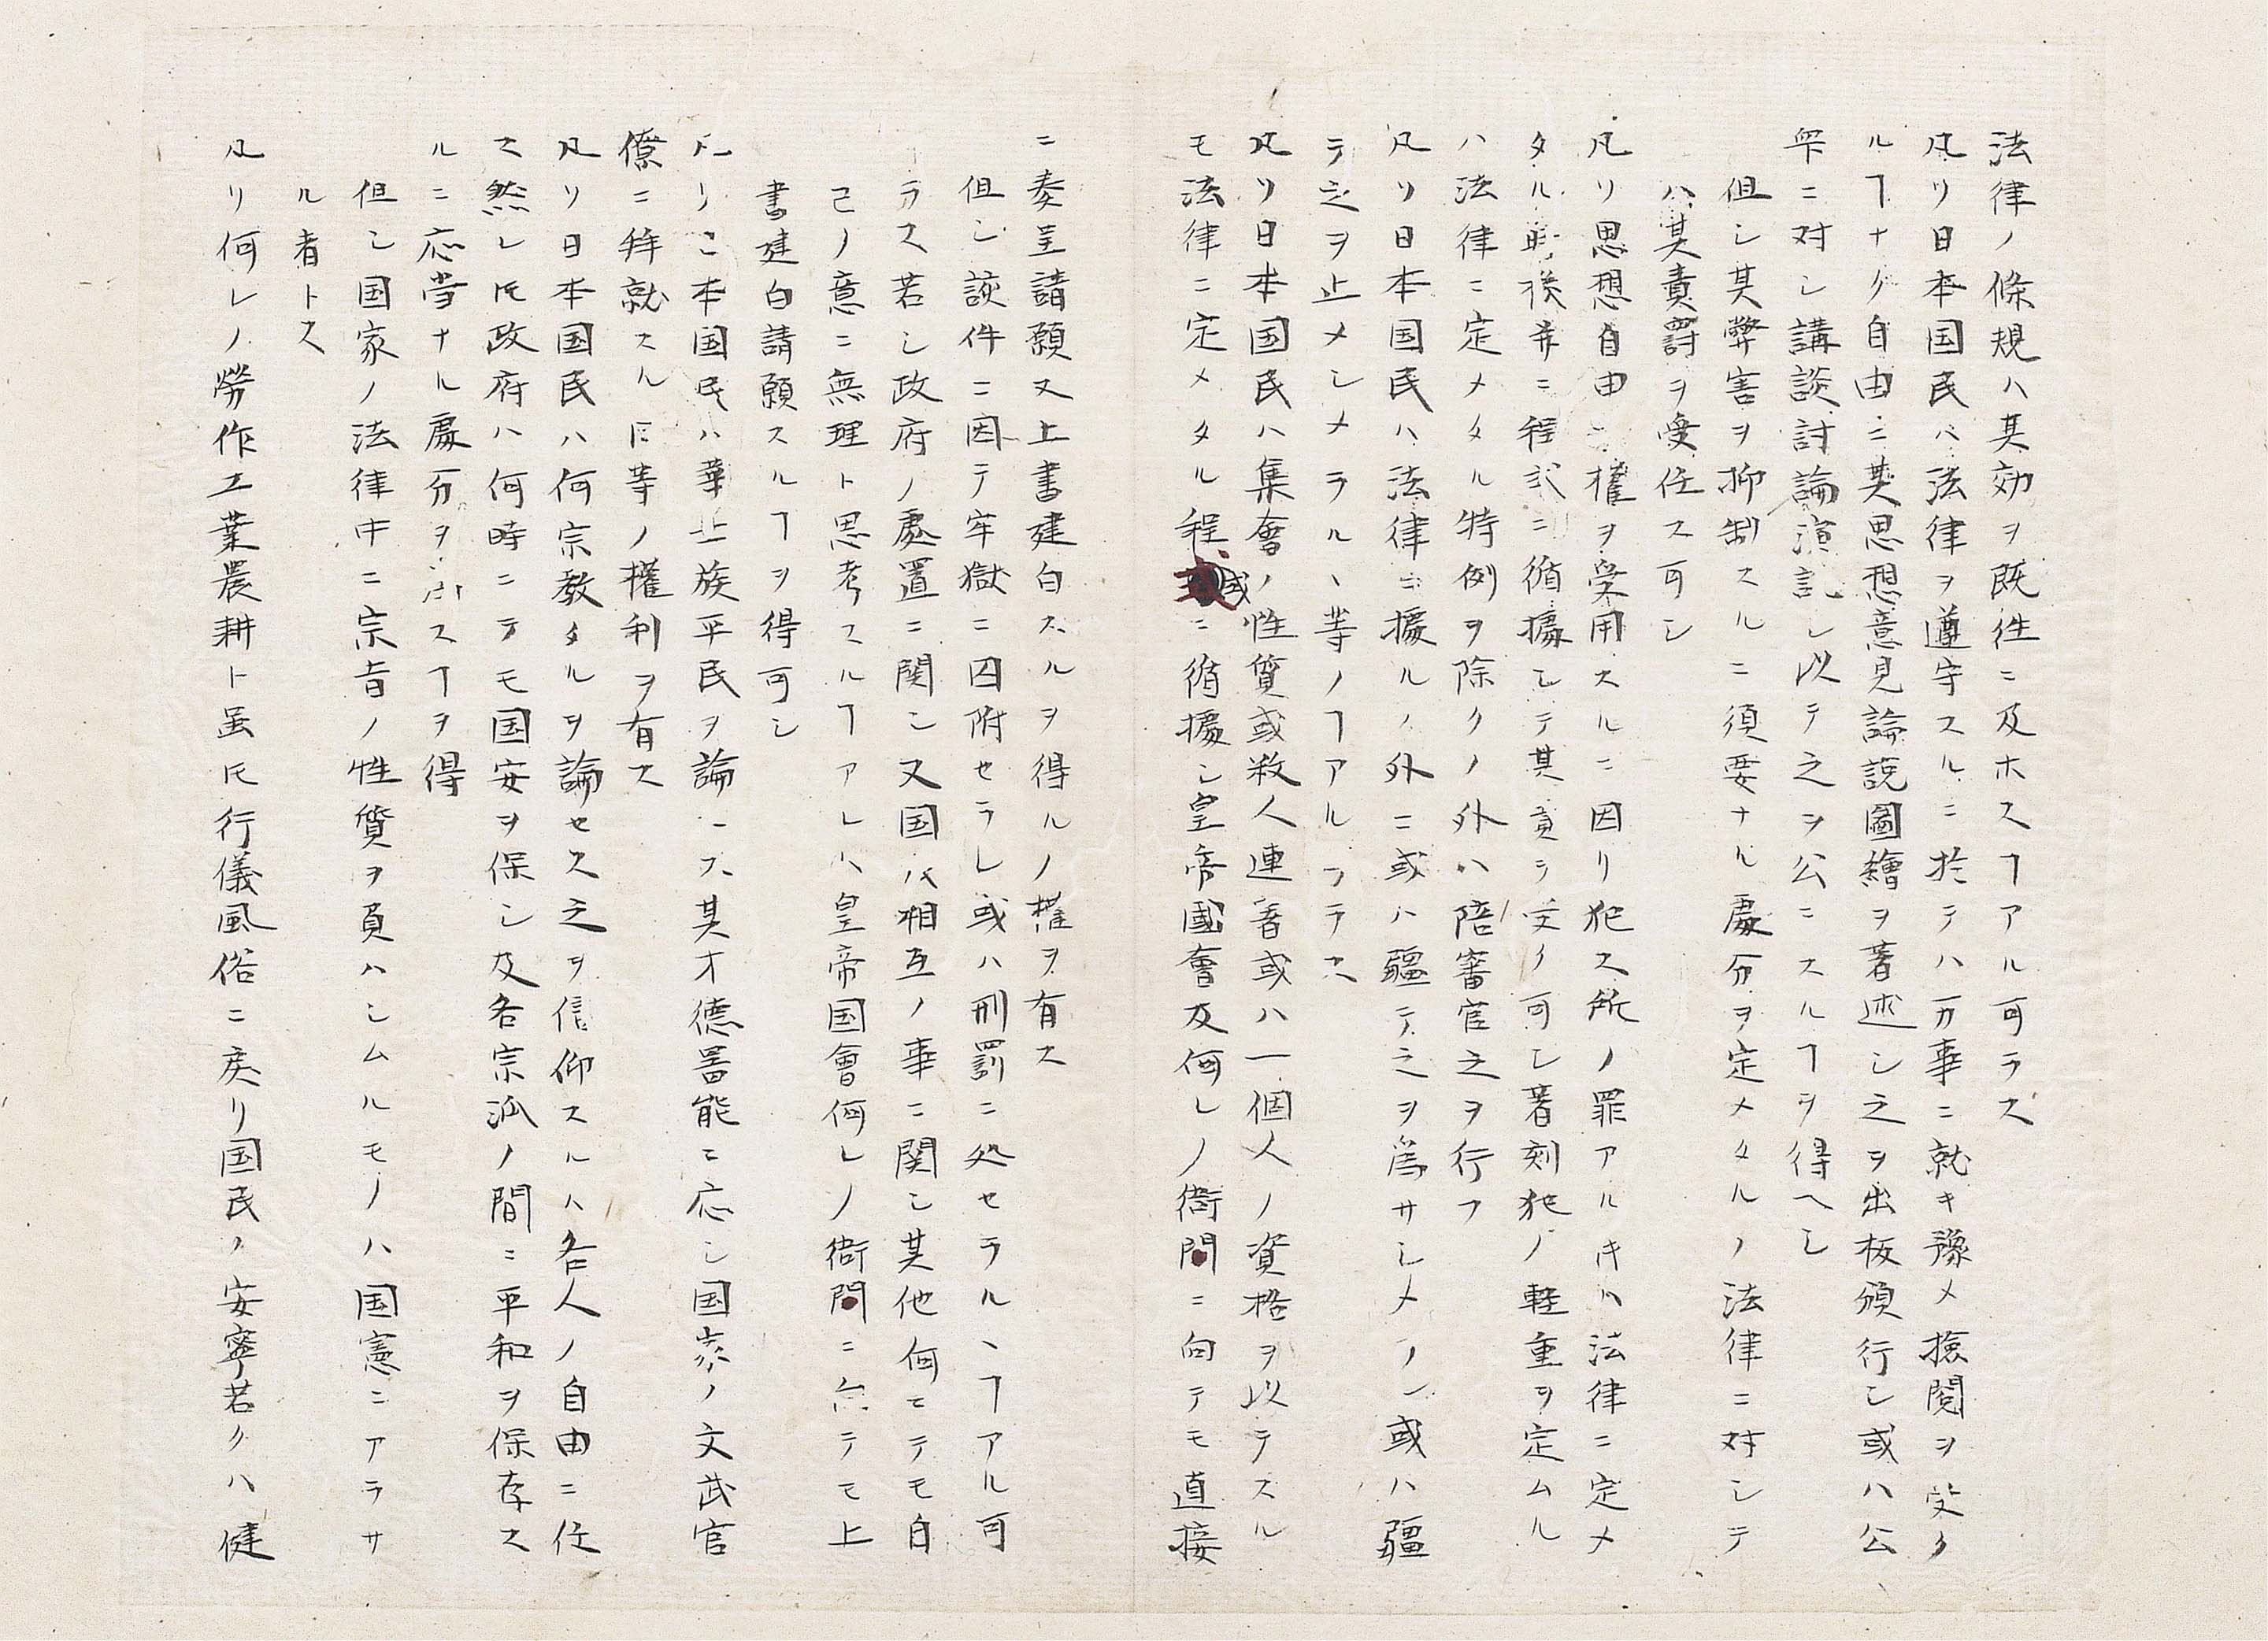 法律ノ條規ハ其効ヲ既徃ニ及ホスヿアル可ラス
凡リ日本国民ハ法律ヲ遵守スルニ於テハ万事ニ就キ豫メ撿閲ヲ受ク
ルヿナク自由ニ其思想意見論説圖繪ヲ著述シ之ヲ出板頒行シ或ハ公
衆ニ対シ講談討論演説シ以テ之ヲ公ニスルヿヲ得ヘシ
但シ其弊害ヲ抑制スルニ須要ナル處分ヲ定メタルノ法律ニ対シテ
ハ其責罰ヲ受任ス可シ
凡リ思想自由ノ權ヲ受用スルニ因リ犯ス所ノ罪アルキハ法律ニ定メ
タル時機并ニ程式ニ循據シテ其責ヲ受ク可シ著刻犯ノ軽重ヲ定ムル
ハ法律ニ定メタル特例ヲ除クノ外ハ陪審官之ヲ行フ
凡リ日本国民ハ法律ニ據ルノ外ニ或ハ疆テ之ヲ為サシメラレ或ハ疆
テ之ヲ止メシメラルヽ等ノヿアルヿラス
凡リ日本国民ハ集會ノ性質或数人連署或ハ一個人ノ資格ヲ以テスル
モ法律ニ定メタル程式ニ循據シ皇帝國會及何レノ衙門ニ向テモ直接
ニ奏呈請願又上書建白スルヲ得ルノ權ヲ有ス
但シ該件ニ因テ牢獄ニ囚附セラレ或ハ刑罰ニ処セラルヽヿアル可
ラス若シ政府ノ處置ニ関シ又国民相互ノ事ニ関シ其他何ニテモ自
己ノ意ニ無理ト思考スルヿアレハ皇帝国會何レノ衙門ニ向テモ上
書建白請願スルヿヲ得可シ
凡リ日本国民ハ華士族平民ヲ論セス其才德器能ニ応シ国家ノ文武官
僚ニ拜就スル同等ノ權利ヲ有ス
凡リ日本国民ハ何宗教タルヲ論セス之ヲ信仰スルハ各人ノ自由ニ任
ス然レ𪜈政府ハ何時ニテモ国安ヲ保シ及各宗派ノ間ニ平和ヲ保存ス
ルニ応当ナル處分ヲ為スヿヲ得
但シ国家ノ法律中ニ宗旨ノ性質ヲ負ハシムルモノハ国憲ニアラサ
ル者トス
凡リ何レノ勞作工業農耕ト虽𪜈行儀風俗ニ戻リ国民ノ安寧若クハ健